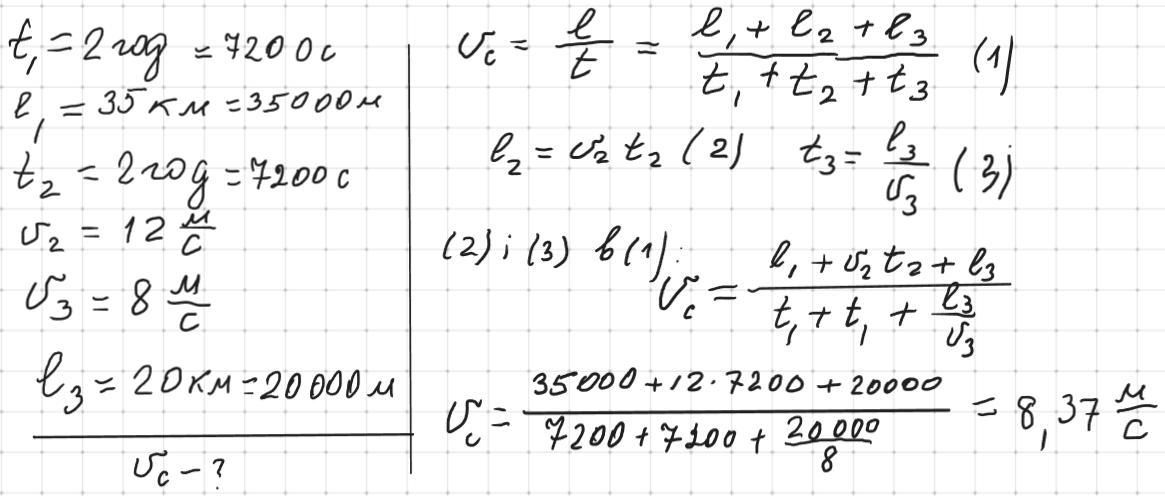 t₁ = 2 год = 7200 с
l₁ = 35 км = 35000 м
t₂ = 2 год = 7200 с
v₂ = 12 м/с
v₃ = 8 м/с
l₃ = 20 км = 20000 м
v_c – ?
v_c = l/t = (l₁ + l₂ + l₃)/(t₁ + t₂ + t₃) (1)
l₂ = v₂ t₂ (2) t₃ = l₃/v₃ (3)
(2) і (3) в (1):
v_c = (l₁ + v₂ t₂ + l₃)/(t₁ + t₁ + l₃/v₃)
v_c = (35000 + 12 · 7200 + 20000)/(7200 + 7200 + 20000/8) = 8,37 м/с